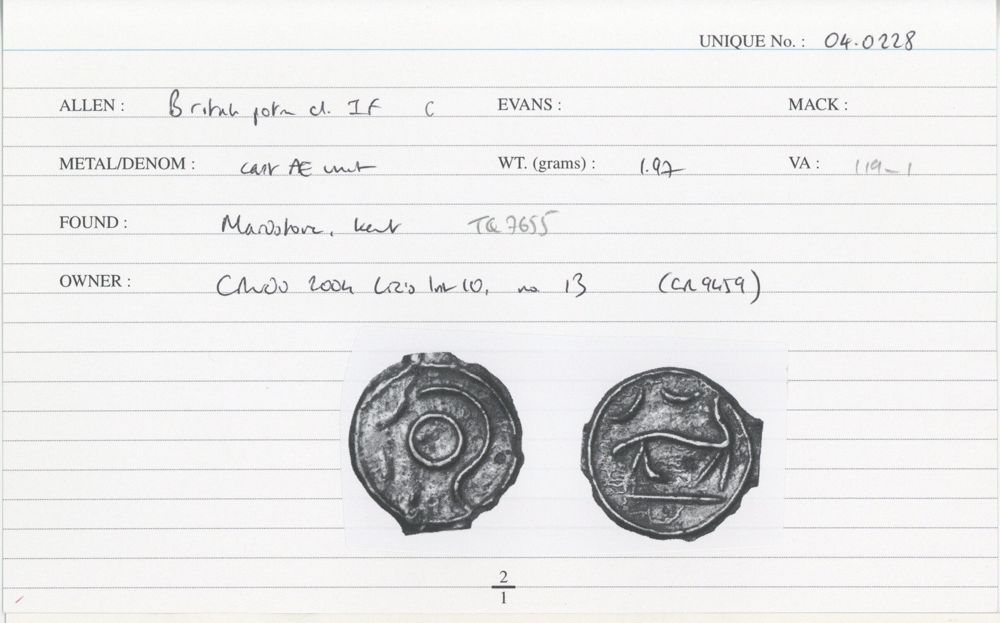 UNIQUE No. : 04.0228
ALLEN : British potin cl. IF C EVANS : MACK :
METAL/DENOM : cast Æ unit WT. (grams) : 1.97 VA : 119-1
FOUND : Maidstone, Kent TQ 7655
OWNER : 2004 no. 13 (CR 9459)
2
1